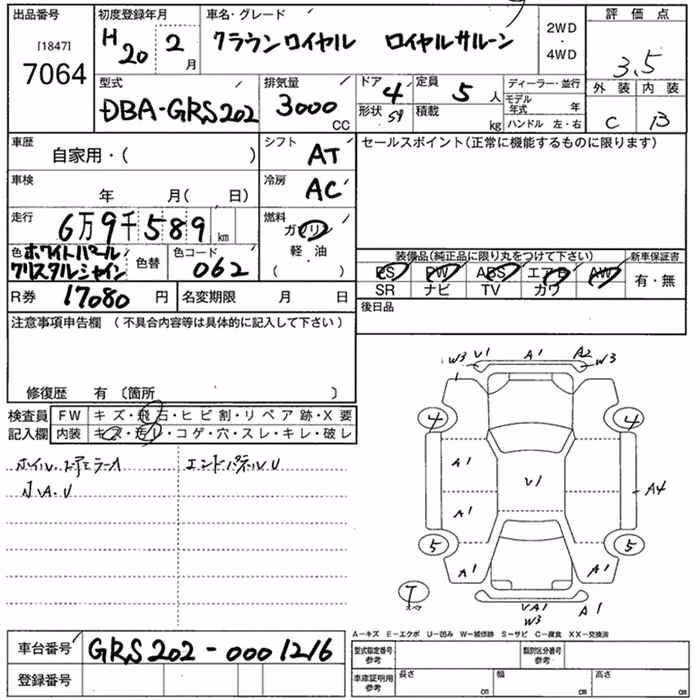 出品番号 初度登録年月 車名・グレード 2WD ・ 4WD 評価点
[1847] 7064 H20 2月 クラウンロイヤル ロイヤルサルーン 3.5
外装 内装
C B
型式 排気量 ドア 4 定員 5人 ディーラー・並行
DBA-GRS202 3000 CC 形状 SD 積載 kg モデル年式 年
ハンドル 左・右
車歴 自家用・( ) シフト AT セールスポイント(正常に機能するものに限ります)
車検 年 月( 日) 冷房 AC
走行 6万9千589km 燃料 ガソリン
軽・油
( )
色 ホワイトパール 色替 色コード 062
クリスタルシャイン
装備品(純正品に限り丸をつけて下さい) 新車保証書
PS PW ABS エアB AW 有・無
SR ナビ TV カワ
R券 17080円 名変期限 月 日 後日品
注意事項申告欄 (不具合内容等は具体的に記入して下さい)
修復歴 有 〔箇所 〕
検査員 FW キズ・飛石・ヒビ割・リペア跡・X要
記入欄 内装 キズ・汚レ・コゲ・穴・スレ・キレ・破レ
エンドパネルU
小A.U
W3 U1 A1 A2 W3
4 4
A1
U1
A4
A1
5 5
A1 A1
T
UA1 A1
W3
A-キズ E-エクボ U-凹み W-補修跡 S-サビ C-腐食 XX-交換済
車台番号 GRS202-0001216
型式指定番号 参考 類別区分番号 参考
登録番号
車庫証明用 参考 長さ cm 幅 cm 高さ cm